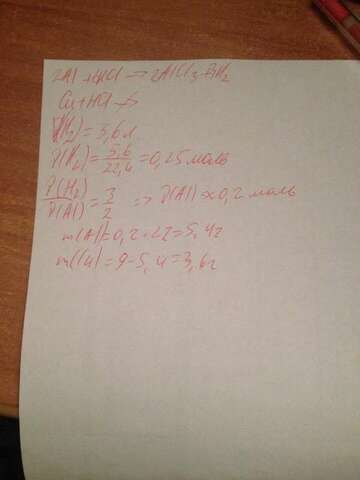 2Al + 6HCl → 2AlCl₃ + 3H₂
Cu + HCl ↛
V(H₂) = 5,6 л
ν(H₂) = 5,6/22,4 = 0,25 моль
ν(H₂)/ν(Al) = 3/2 => ν(Al) ≈ 0,2 моль
m(Al) = 0,2 · 27 = 5,4 г
m(Cu) = 9 - 5,4 = 3,6 г